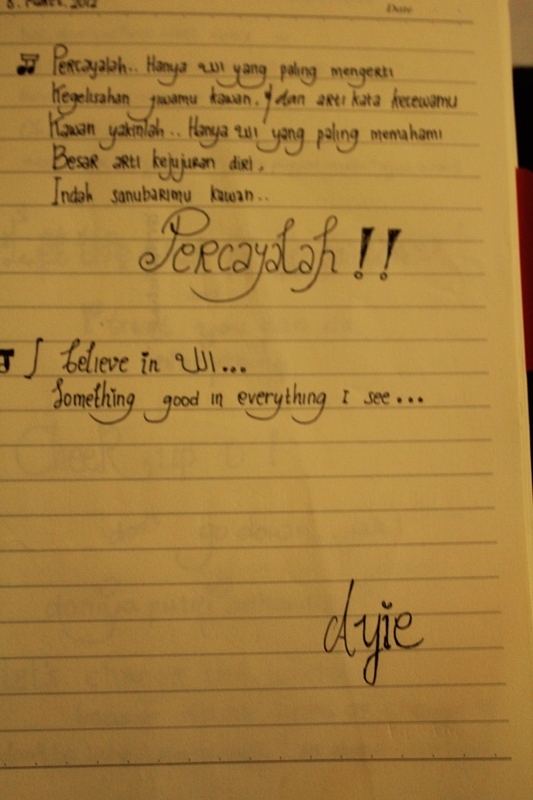 8. Maret. 2012
Date
Percayalah.. Hanya الله yang paling mengerti
Kegelisahan jiwamu kawan, dan arti kata kecewamu
Kawan yakinlah.. Hanya الله yang paling memahami
Besar arti kejujuran diri,
Indah sanubarimu kawan..
Percayalah !!
I believe in الله...
Something good in everything I see...
dyie